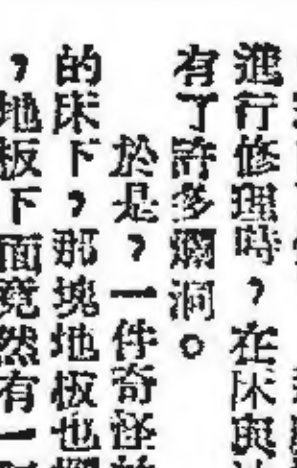 進行修理時，在床與
有了許多爛洞。
於是，一件奇怪
的床下，那塊地板也
，地板下面竟然有一